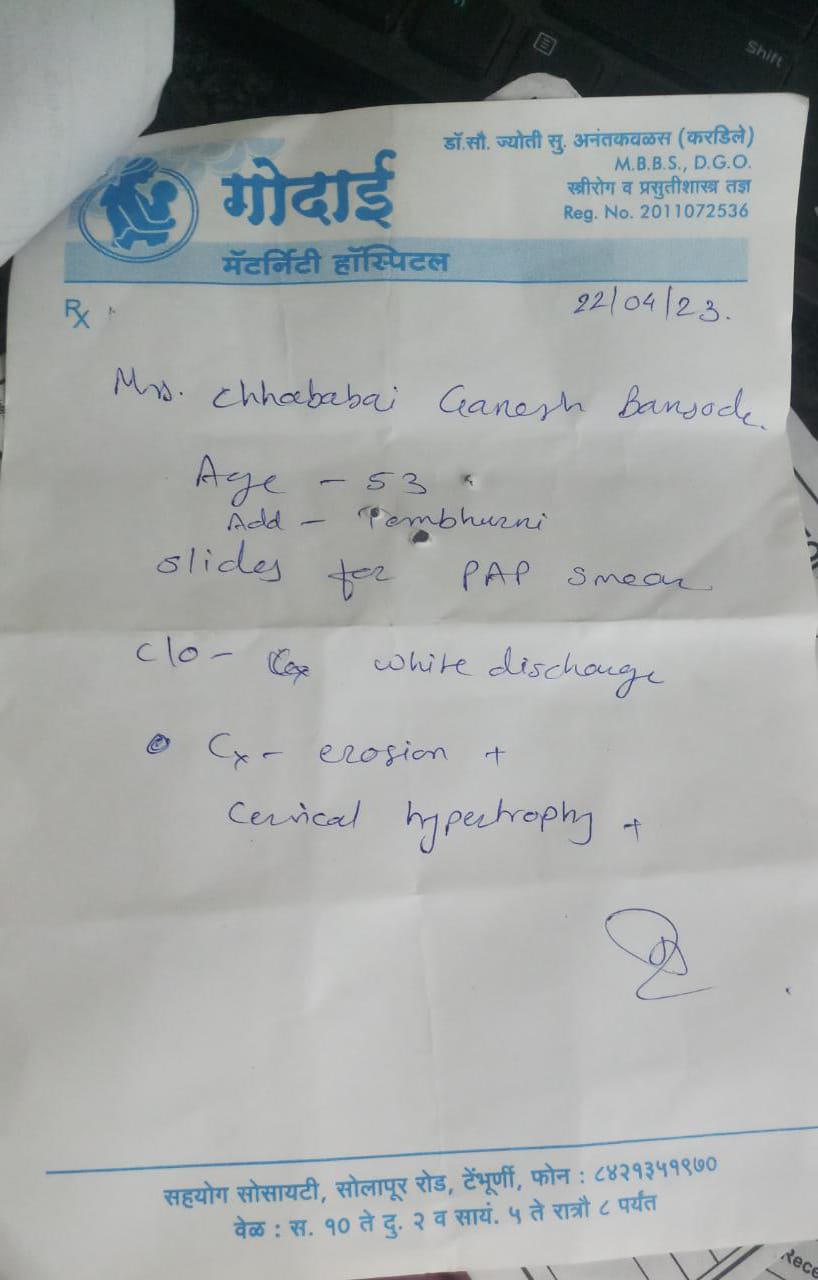 गोदाई
मॅटर्निटी हॉस्पिटल
डॉ.सौ. ज्योती सु. अनंतकवळस (करडिले)
M.B.B.S., D.G.O.
स्त्रीरोग व प्रसुतीशास्त्र तज्ञ
Reg. No. 2011072536
Rx
22/04/23.
Mrs. Chhababai Ganesh Bansode.
Age - 53
Add - Tembhurni
slides for PAP smear
C/o - white discharge
Cx - erosion +
Cervical hypertrophy +
सहयोग सोसायटी, सोलापूर रोड, टेंभूर्णी, फोन : ८४२१३५१९७०
वेळ : स. १० ते दु. २ व सायं. ५ ते रात्रौ ८ पर्यंत
Shift
Rece